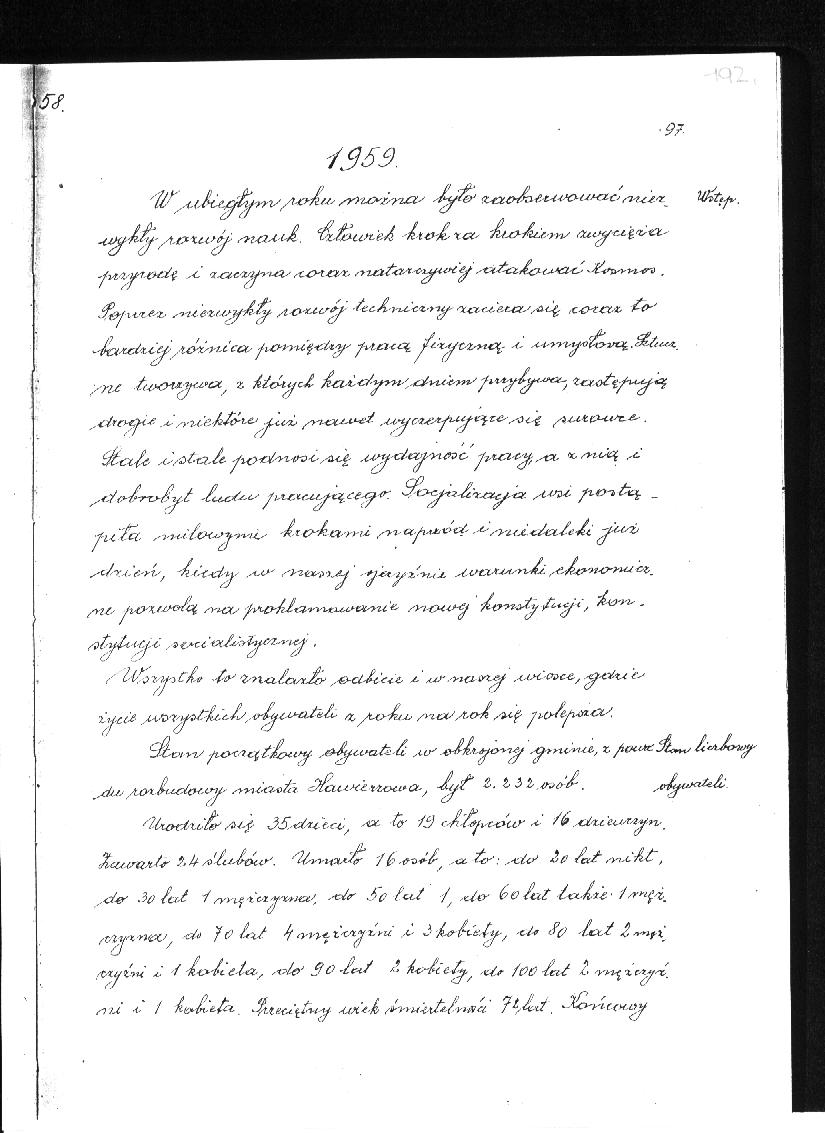 192.
58.
97.
1959.
W ubiegłym roku można było zaobserwować niez-
Wstęp.
wykły rozwój nauk. Człowiek krok za krokiem zwycięża
przyrodę i zaczyna coraz natarczywiej atakować Kosmos.
Poprzez niezwykły rozwój techniczny zaciera się coraz to
bardziej różnica pomiędzy pracą fizyczną i umysłową. Sztucz-
ne tworzywa, z których każdym dniem przybywa, zastępują
drogie i niektóre już nawet wyczerpujące się surowce.
Stale i stale podnosi się wydajność pracy, a z nią i
dobrobyt ludu pracującego. Socjalizacja wsi postą-
piła milowymi krokami naprzód i niedaleki już
dzień, kiedy w naszej ojczyźnie warunki ekonomicz-
ne pozwolą na proklamowanie nowej konstytucji, kon-
stytucji socialistycznej.
Wszystko to znalazło odbicie i w naszej wiosce, gdzie
życie wszystkich obywateli z roku na rok się polepsza.
Stan początkowy obywateli w obkrojonej gminie, z powo
Stan liczbowy
du rozbudowy miasta Zawierzowa, był 2.232 osób.
obywateli.
Urodziło się 35 dzieci, a to 19 chłopców i 16 dziewczyn.
Zawarto 24 ślubów. Umarło 16 osób, a to: do 20 lat nikt,
do 30 lat 1 mężczyzna, do 50 lat 1, do 60 lat także 1 męż-
czyzna, do 70 lat 4 mężczyźni i 3 kobiety, do 80 lat 2 męż-
czyźni i 1 kobieta, do 90 lat 2 kobiety, do 100 lat 2 mężczyź-
ni i 1 kobieta. Przeciętny wiek śmiertelności 72 lat. Końcowy